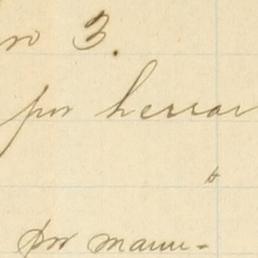 no 3.
por herrar
"
por manu-